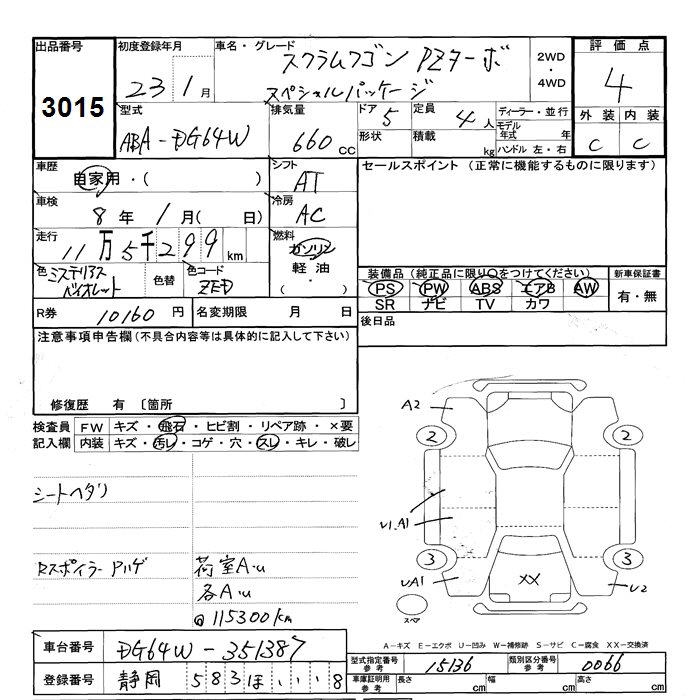 出品番号 初度登録年月 車名・グレード スクラムワゴン PZターボ 2WD・4WD 評価点
3015 23 1月 スペシャルパッケージ 4
型式 ABA-DG64W 排気量 660cc ドア 5 定員 4人 ディーラー・並行 外装 内装
形状 積載 kg モデル年式 年 ハンドル 左・右 C C
車歴 自家用・( ) シフト AT セールスポイント (正常に機能するものに限ります)
車検 8年 1月( 日) 冷房 AC
走行 11万5千299km 燃料 ガソリン 軽油・( )
色 ミステリアスバイオレット 色替 色コード ZED
装備品 (純正品に限り○をつけてください) 新車保証書
PS PW ABS エアB AW 有・無
SR ナビ TV カワ
R券 10160円 名変期限 月 日 後日品
注意事項申告欄 (不具合内容等は具体的に記入して下さい)
修復歴 有 〔箇所 〕
検査員記入欄 FW キズ・飛石・ヒビ割・リペア跡・×要
内装 キズ・汚レ・コゲ・穴・スレ・キレ・破レ
A2
2 2
シートヘタリ
U1.A1
3 3
Rスポイラー Pハゲ 荷室A.u
各A.u
@115300km
UA1 XX U2
スペア
A-キズ E-エクボ U-凹み W-補修跡 S-サビ C-腐食 XX-交換済
車台番号 DG64W-351387
型式指定番号 参考 15136 類別区分番号 参考 0066
登録番号 静岡 583 ほ ・・・8
車庫証明用 参考 長さ cm 幅 cm 高さ cm